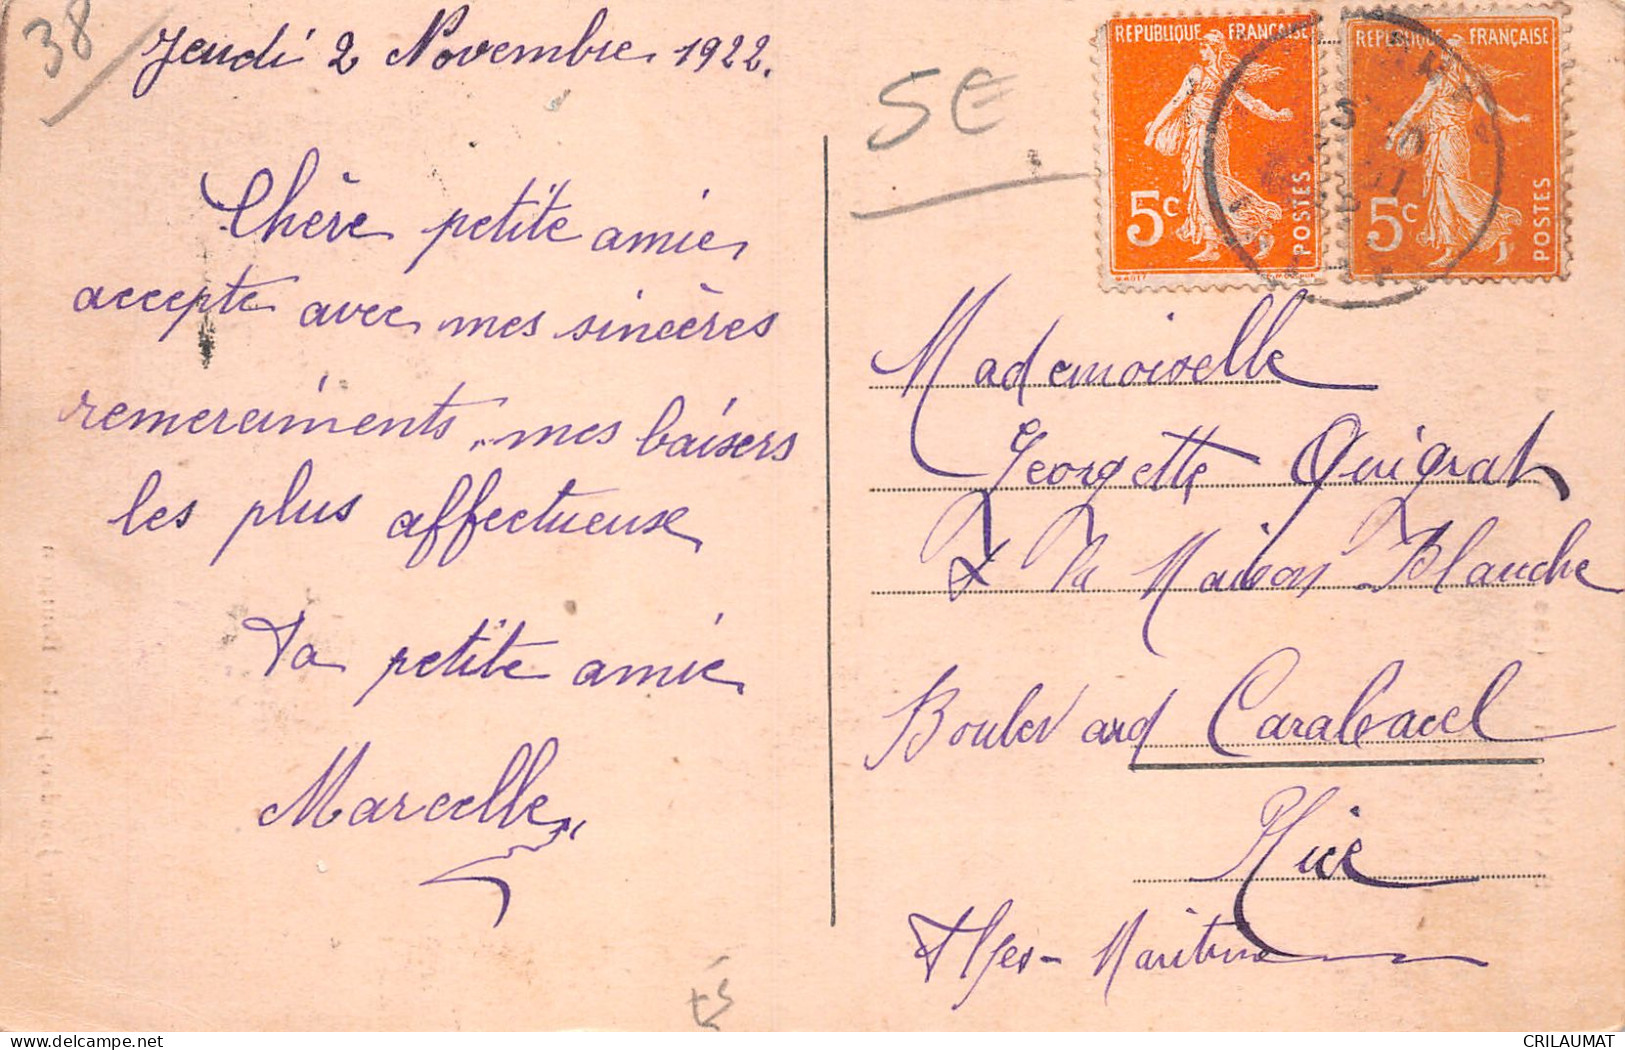 38
Jeudi 2 Novembre 1922.
Chère petite amie
accepte avec mes sincères
remerciments, mes baisers
les plus affectueuse
Ta petite amie
Marcelle
5€
REPUBLIQUE FRANÇAISE
5c
POSTES
REPUBLIQUE FRANÇAISE
5c
POSTES
Mademoiselle
Georgette
La Maison Blanche
Boulevard Carabacel
Nice
Alpes-Maritime
delcampe.net
CRILAUMAT